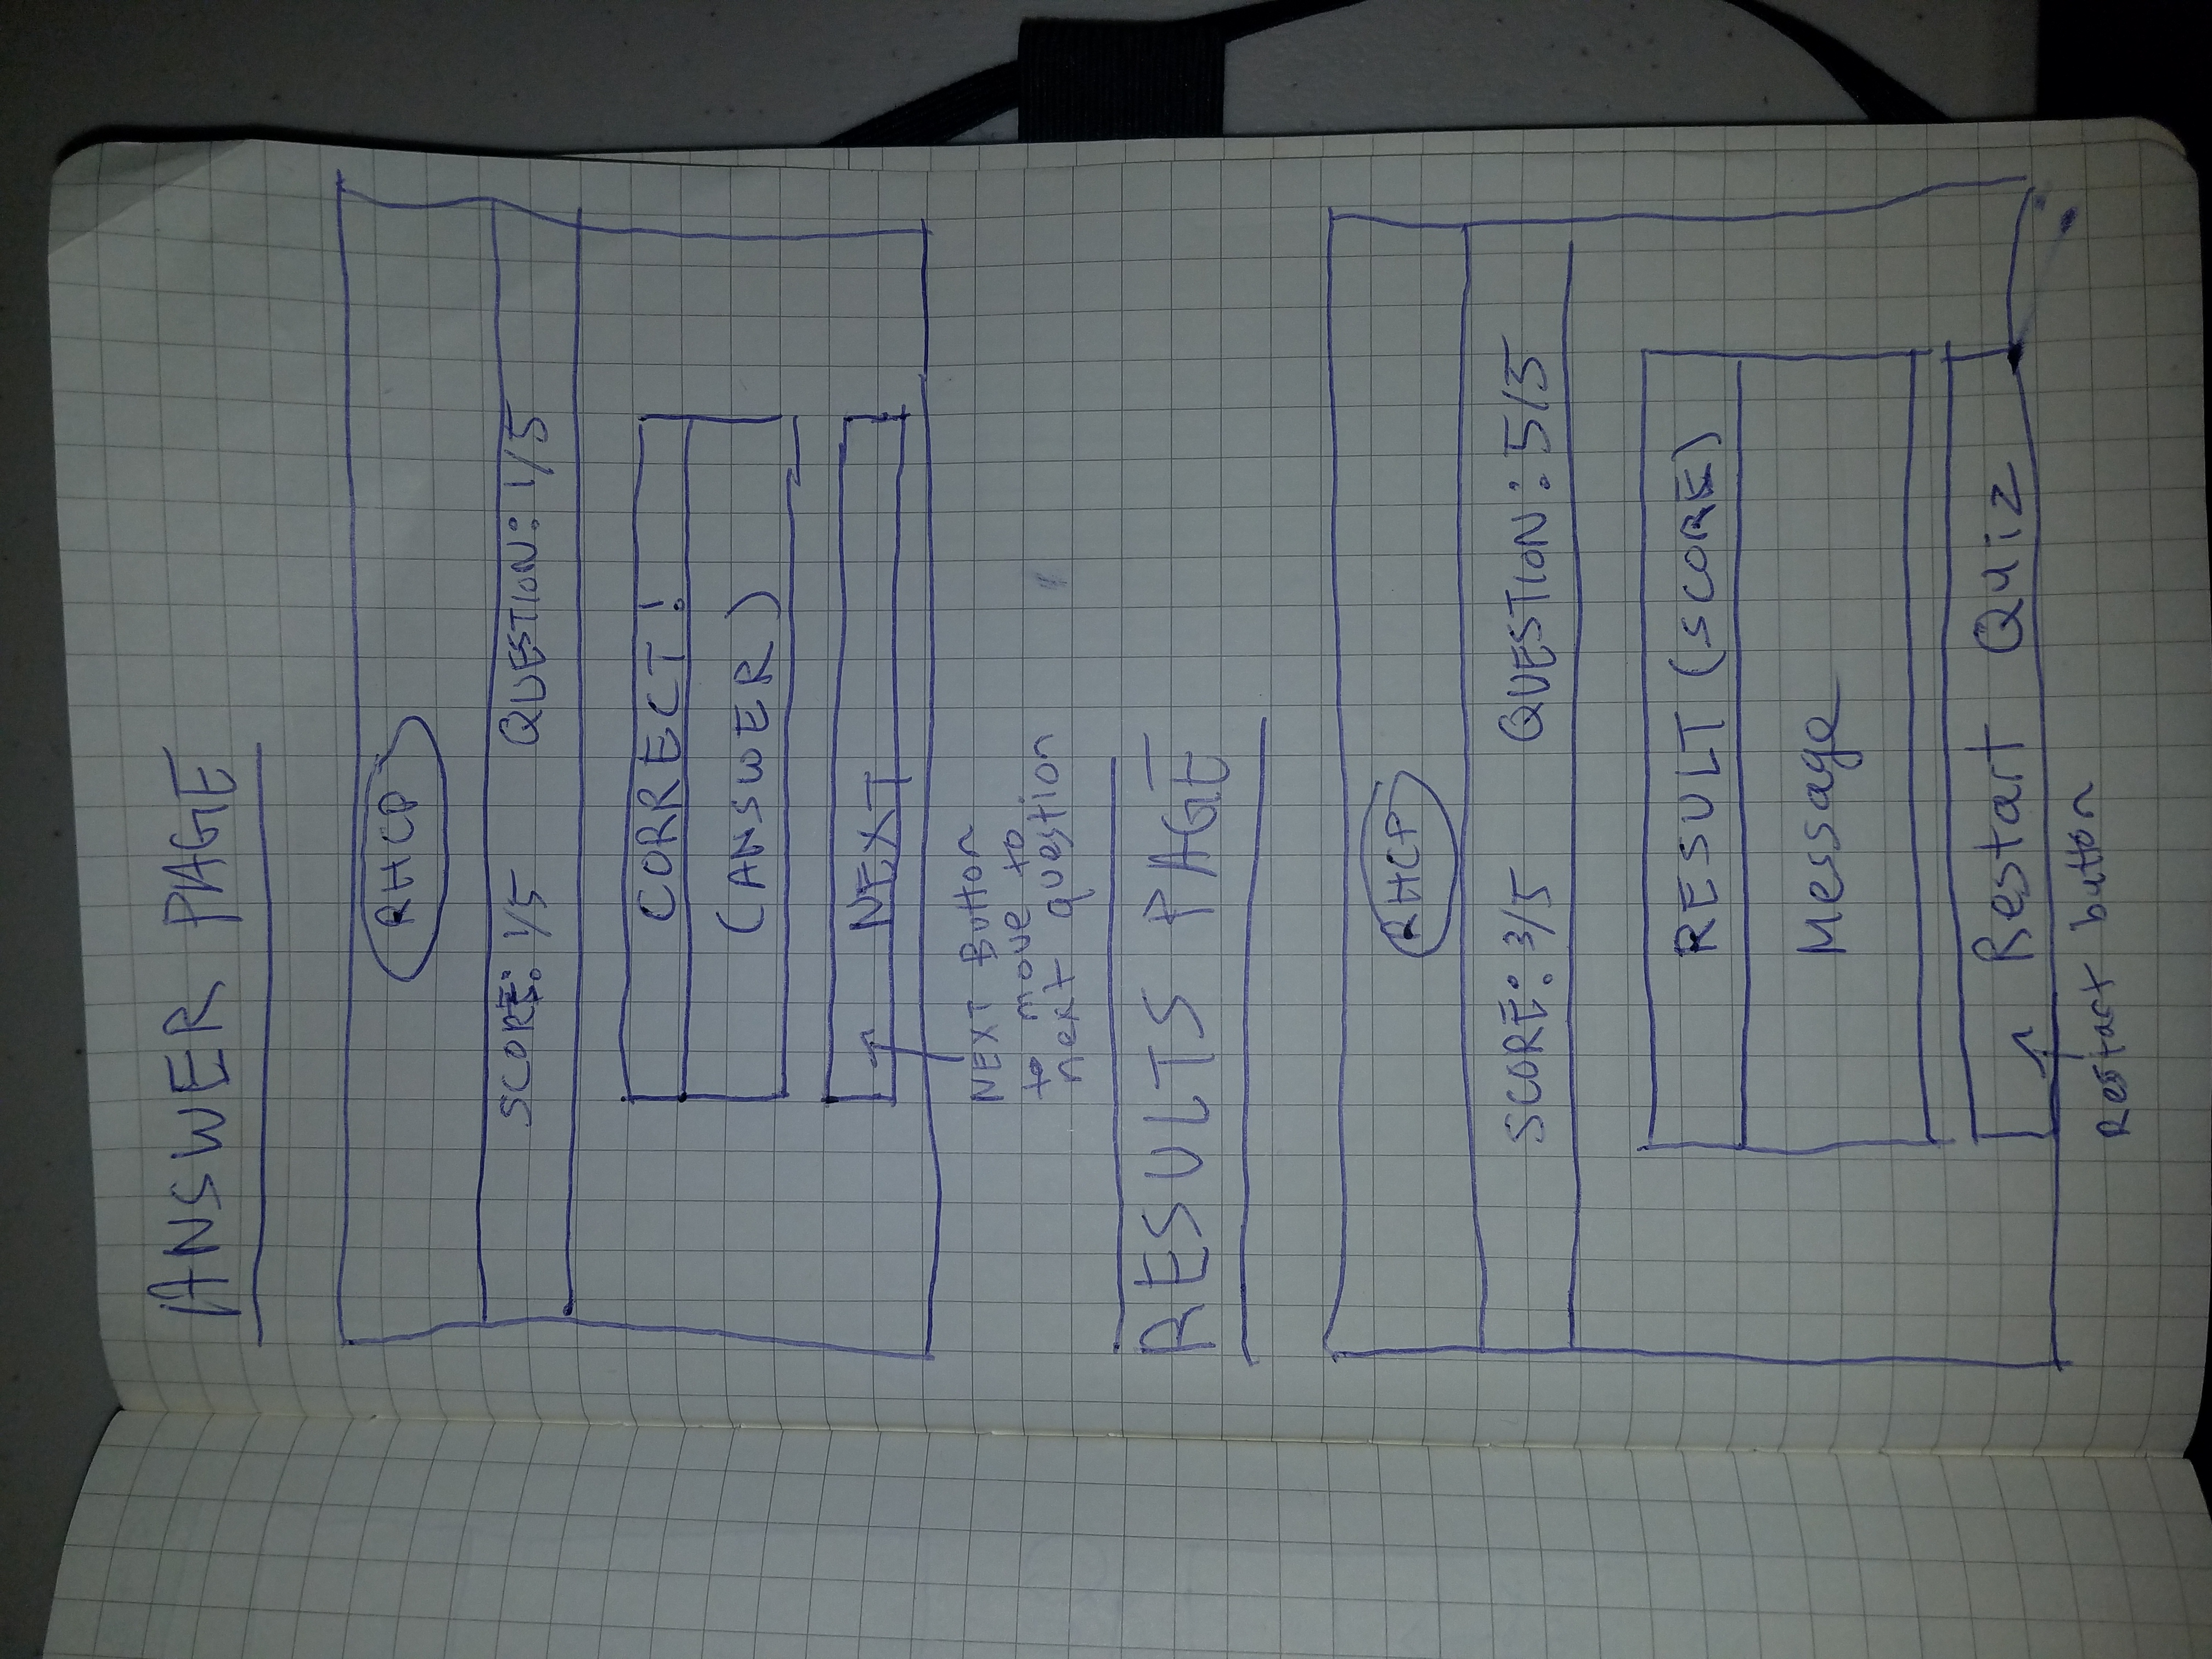 ANSWER PAGE
RHCP
SCORE: 1/5 QUESTION: 1/5
CORRECT!
(ANSWER)
NEXT
NEXT Button
to move to
next question
RESULTS PAGE
RHCP
SCORE: 3/5 QUESTION: 5/5
RESULT (SCORE)
Message
Restart Quiz
Restart button